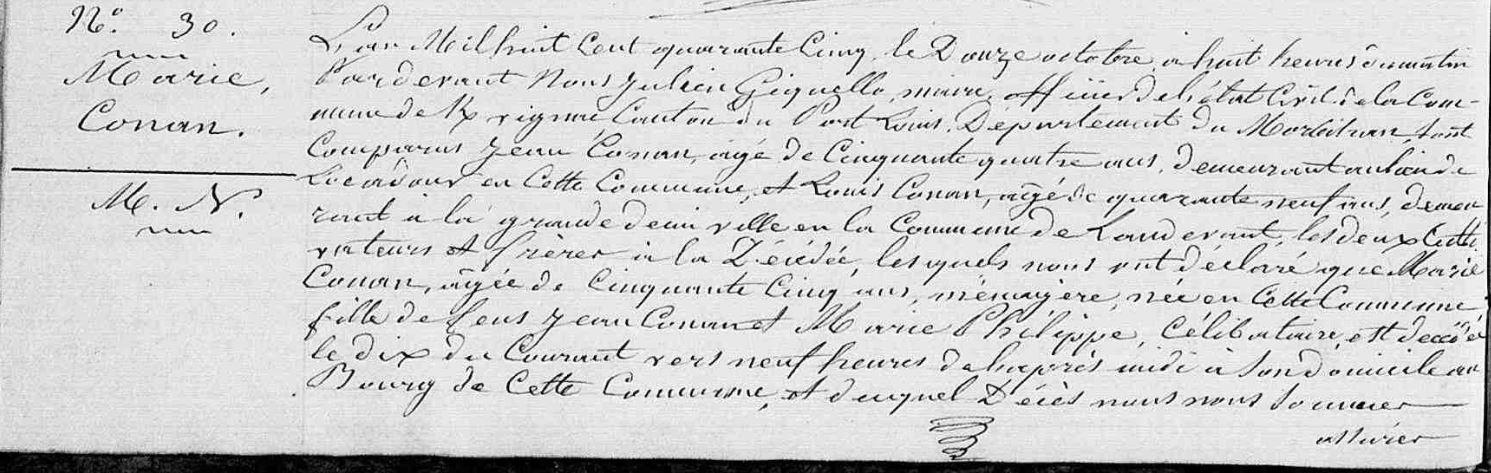 N.° 30.
Marie,
Conan.
M. N.
L'an Mil huit Cent quarante Cinq, le Douze octobre, à huit heures du matin
Pardevant Nous Julien Gequello, maire, officier de l'état Civil de la Com-
mune de Kvignac Canton du Port Louis, Departement du Morbihan, sont
Comparus Jean Conan, agé de Cinquante quatre ans, demeurant au lieu de
Locadour en Cette Commune, et Louis Conan, agé de quarante neuf ans, demeu
rant à la grande demi ville en la Commune de Landevant, les deux Culti
vateurs et frères à la Décédée, les quels nous ont déclaré que Marie
Conan, agée de Cinquante Cinq ans, ménagère, née en Cette Commune,
fille de feus Jean Conan et Marie Philippe, Célibataire, est decédée
le dix du Courant vers neuf heures de l'après midi a son domicile au
Bourg de Cette Commune, et duquel Décès nous nous sommes